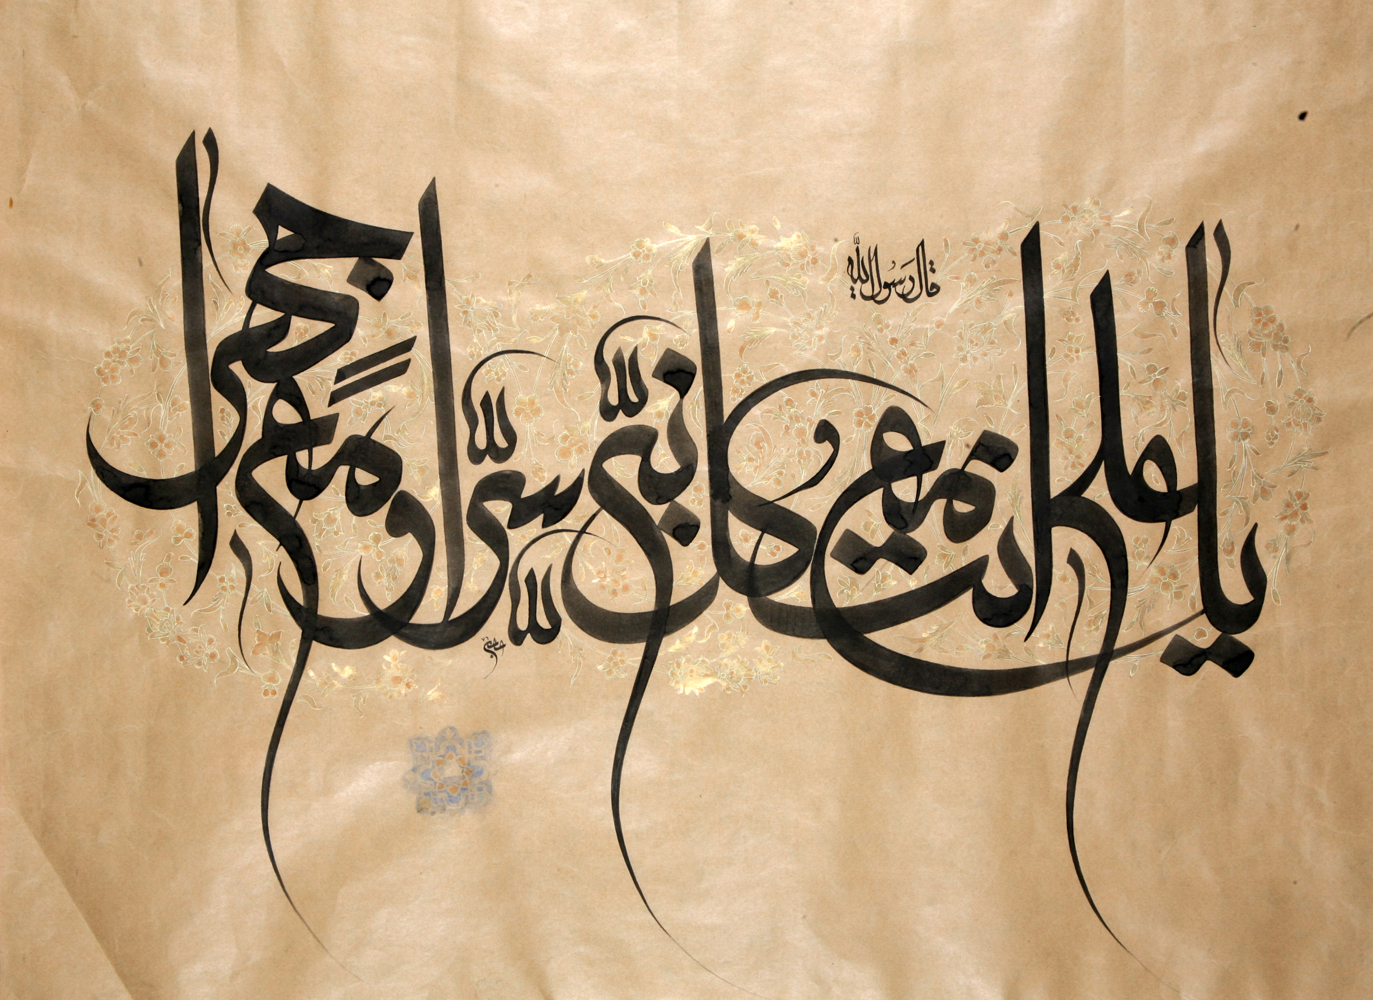 قال رسول الله
يا علي انت مع كل نبيّ سرّاً و معي جهرا